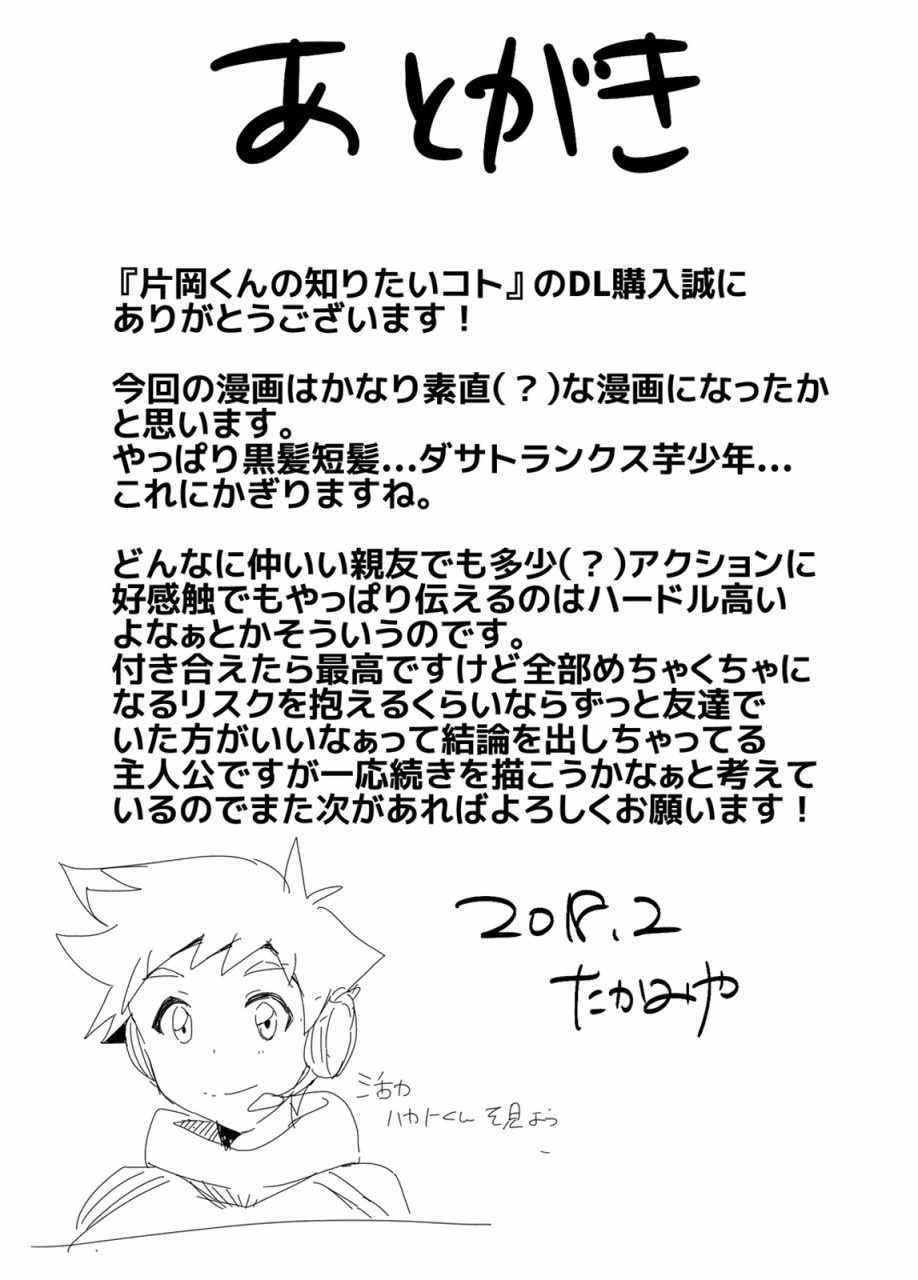 あとがき
『片岡くんの知りたいコト』のDL購入誠に
ありがとうございます！
今回の漫画はかなり素直(？)な漫画になったか
と思います。
やっぱり黒髪短髪…ダサトランクス芋少年…
これにかぎりますね。
どんなに仲いい親友でも多少(？)アクションに
好感触でもやっぱり伝えるのはハードル高い
よなぁとかそういうのです。
付き合えたら最高ですけど全部めちゃくちゃに
なるリスクを抱えるくらいならずっと友達で
いた方がいいなぁって結論を出しちゃってる
主人公ですが一応続きを描こうかなぁと考えて
いるのでまた次があればよろしくお願います！
2018.2
たかみや
ハヤトくん を見よう